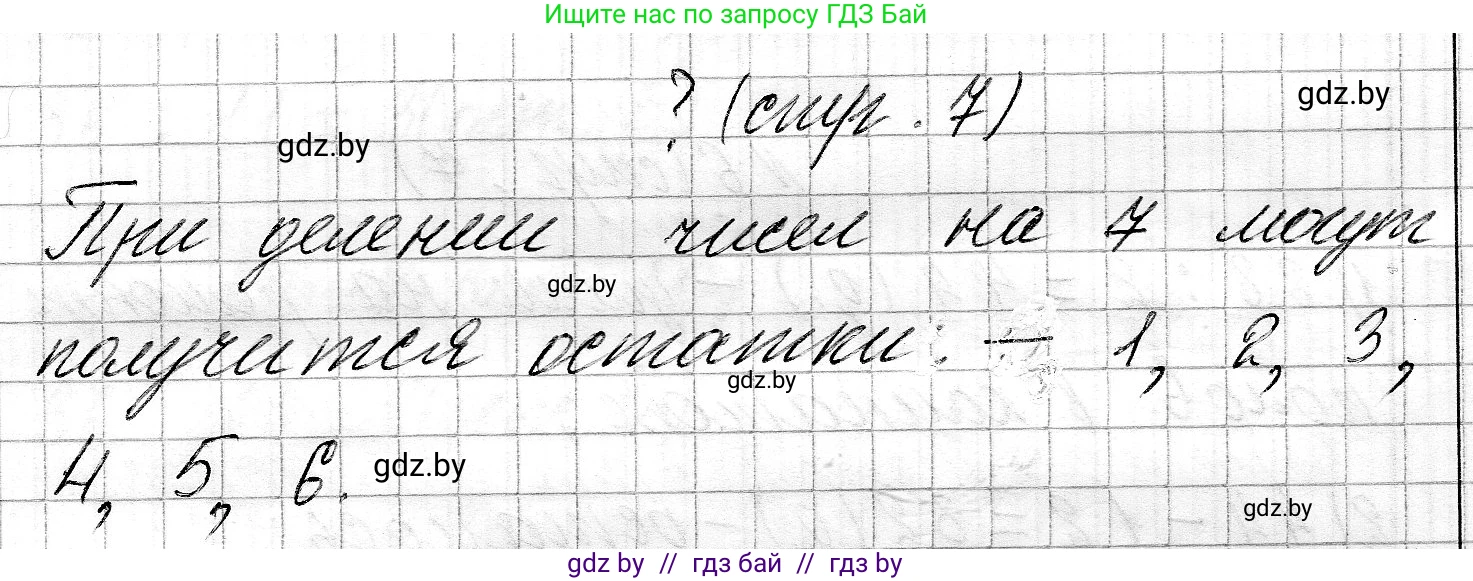 Ищите нас по запросу ГДЗ Бай
? (стр. 7)
gdz.by
gdz.by
При делении чисел на 7 могут
gdz.by
получится остатки: — 1, 2, 3,
gdz.by
4, 5, 6.
gdz.by
gdz.by
gdz by // гдз бай // гдз by